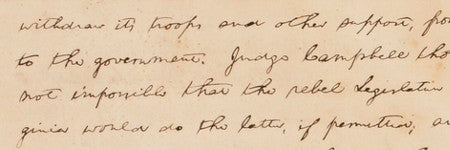 withdraw its troops and other support, fro
to the government. Judge Campbell tho
not impossible that the rebel Legislatur
ginia would do the latter, if permitted; an